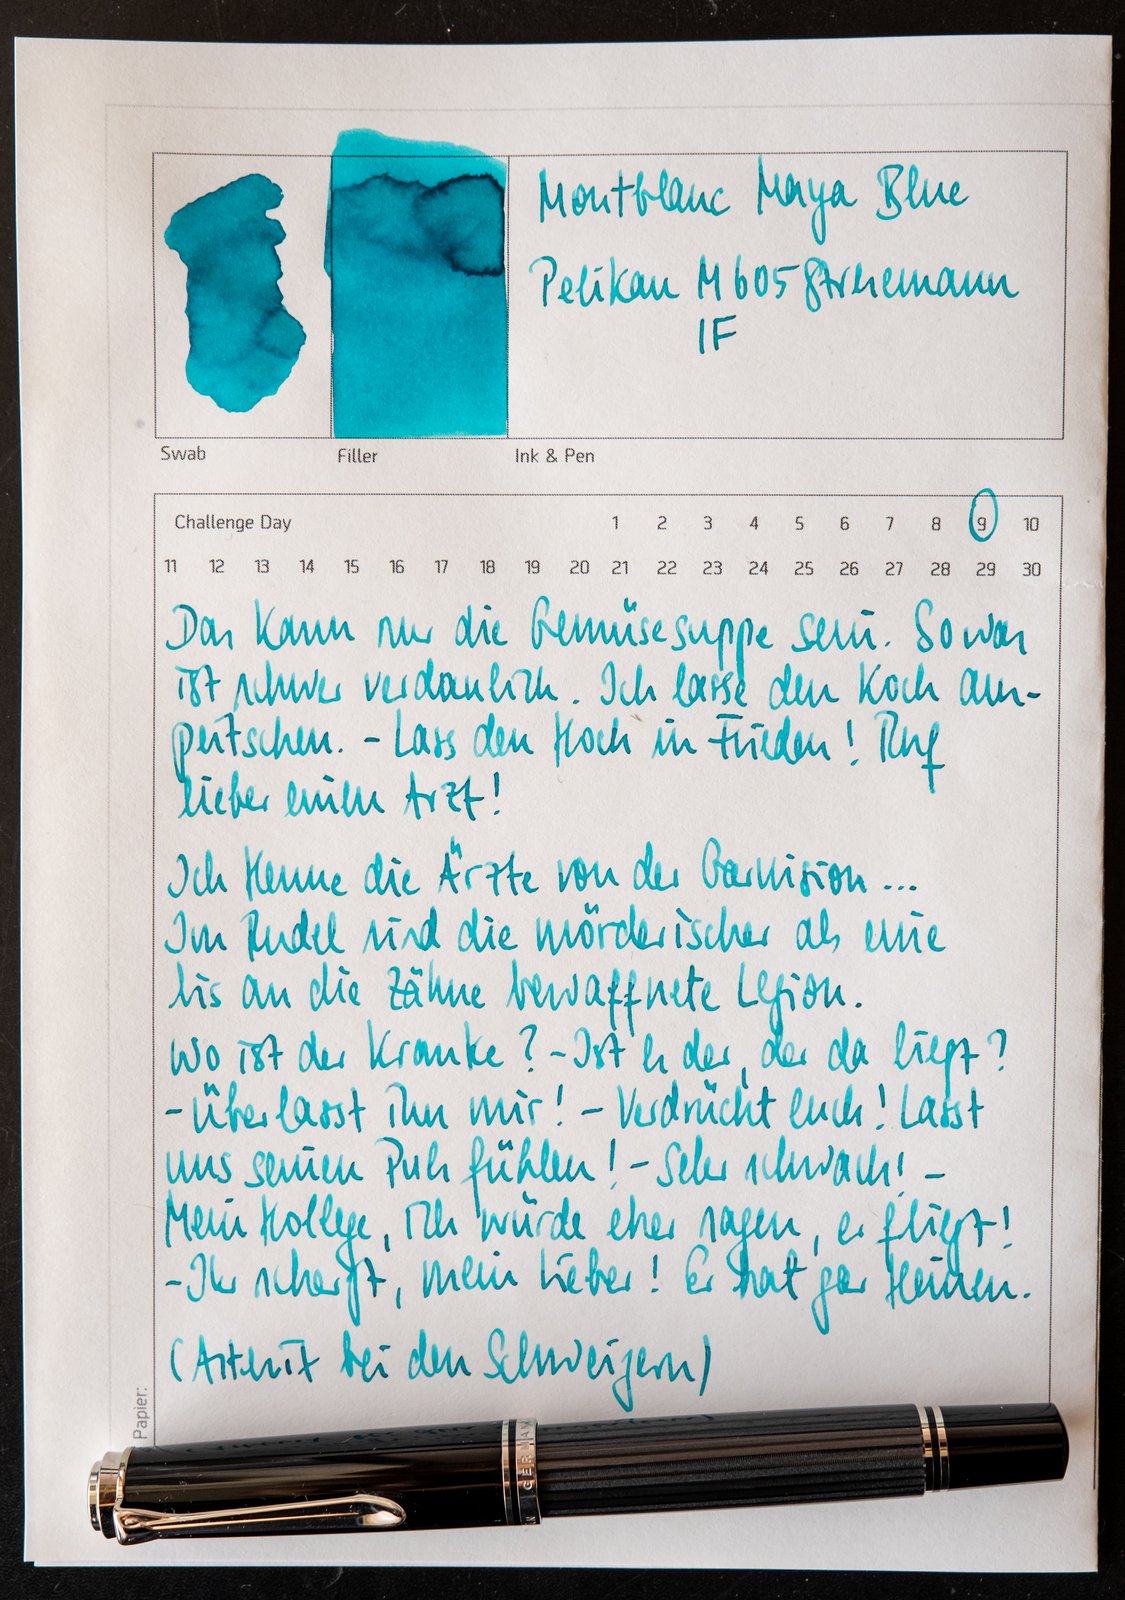 Montblanc Maya Blue
Pelikan M605 Stresemann
IF
Swab
Filler
Ink & Pen
Challenge Day 1 2 3 4 5 6 7 8 9 10
11 12 13 14 15 16 17 18 19 20 21 22 23 24 25 26 27 28 29 30
Das kann nur die Gemüsesuppe sein. So was
ist schwer verdaulich. Ich lasse den Koch aus-
peitschen. - Lass den Koch in Frieden! Ruf
lieber einen Arzt!
Ich kenne die Ärzte von der Garnision ...
Im Rudel sind die mörderischer als eine
bis an die Zähne bewaffnete Legion.
Wo ist der Kranke? - Ist es der, der da liegt?
- Überlasst ihn mir! - Verdrückt euch! Lasst
uns seinen Puls fühlen! - Sehr schwach! -
Mein Kollege, ich würde eher sagen, er fliegt!
- Ihr scherzt, mein Lieber! Er hat gar keinen.
(Asterix bei den Schweizern)
Papier:
GERMANY